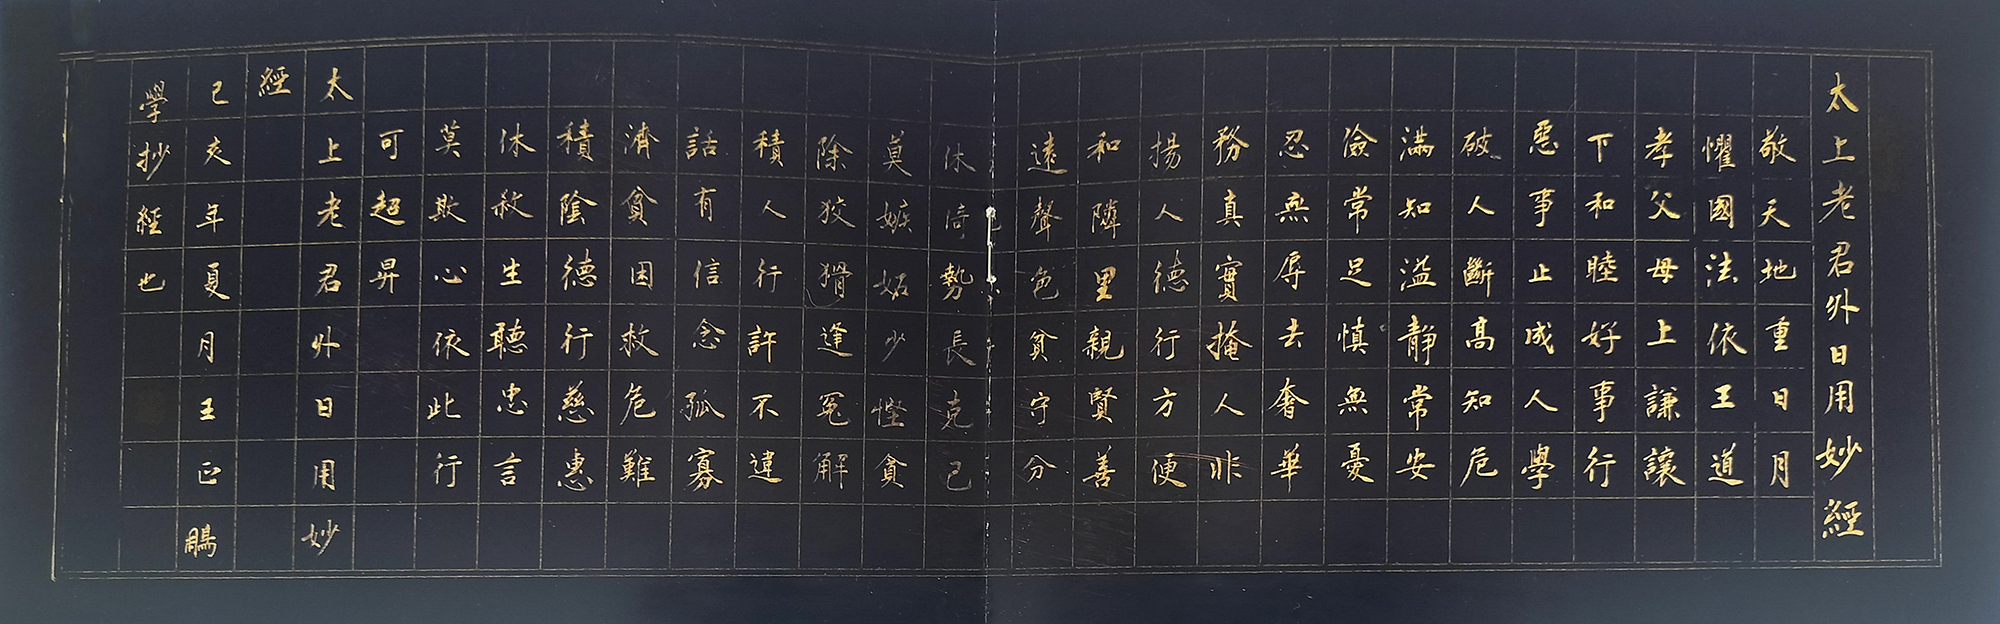 太上老君外日用妙經
敬天地重日月
懼國法依王道
孝父母上謙讓
下和睦好事行
惡事止成人學
破人斷高知危
滿知溢靜常安
儉常足慎無憂
忍無辱去奢華
務真實掩人非
揚人德行方便
和隣里親賢善
遠聲色貧守分
休倚勢長克己
莫嫉妬少慳貪
除狡猾逢冤解
積人行許不違
話有信念孤寡
濟貧困救危難
積陰德行慈惠
休殺生聽忠言
莫欺心依此行
可超昇
太上老君外日用妙
經
己亥年夏月王正鵬
學抄經也